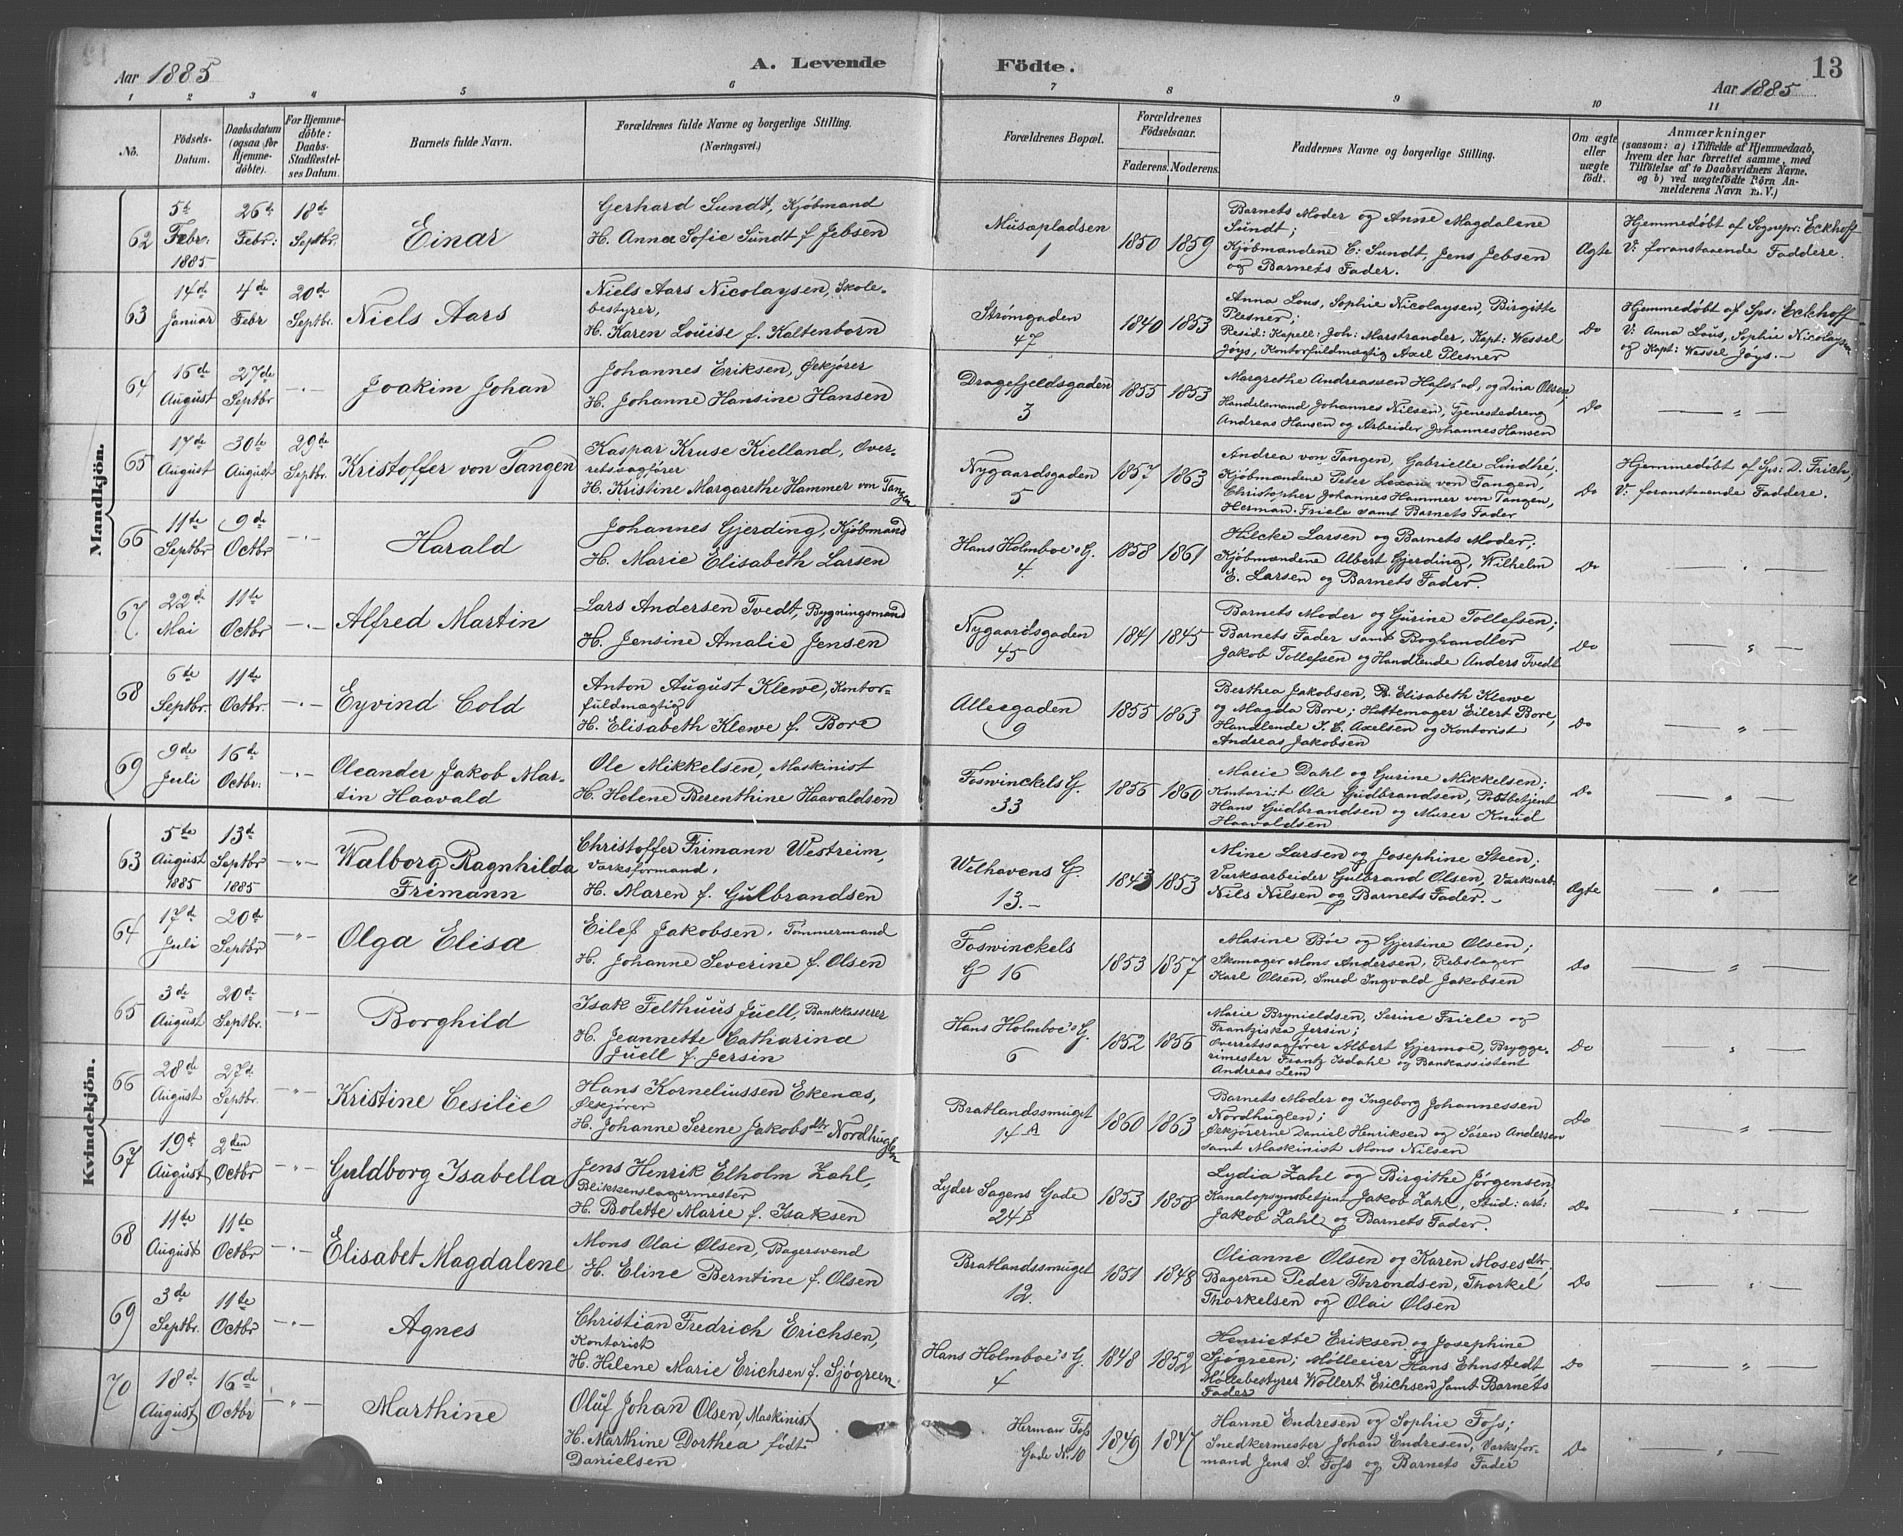 Aar 1885
A. Levende
Födte.
13
Aar 1885
1 2 3 4 5 6 7 8 9 10 11
No.
Födsels-Datum.
Daabsdatum (ogsaa for Hjemmedöbte).
For Hjemmedöbte: Daabs-Stadfæstelses Datum.
Barnets fulde Navn.
Forældrenes fulde Navne og borgerlige Stilling. (Næringsvei.)
Forældrenes Bopæl.
Forældrenes Födselsaar.
Faderens. Moderens.
Faddernes Navne og borgerlige Stilling.
Om ægte eller uægte födt.
Anmærkninger
(saasom: a) i Tilfælde af Hjemmedaab, hvem der har forrettet samme, med Tilföielse af to Daabsvidners Navne, og b) ved uægtefödte Börn Anmelderens Navn m. V.)
Mandkjön.
62
5te Febr: 1885
26de Febr:
18de Septbr.
Einar
Gerhard Sundt, Kjøbmand
H. Anna Sofie Sundt f. Jebsen
Musæpladsen
1
1850 1859
Barnets Moder og Anne Magdalene
Sundt;
Kjøbmændene C. Sundt, Jens Jebsen
og Barnets Fader.
Ægte
Hjemmedøbt af Sognepr: Eckhoff
V: foranstaaende Faddere.
63
14de Januar
4de Febr
20de Septbr.
Niels Aars
Niels Aars Nicolaysen, Skole-
bestyrer,
H. Karen Louise f. Kaltenborn
Strømgaden
47
1840 1853
Anna Lous, Sophie Nicolaysen, Birgitte
Plesner;
Resid: Kapell: Joh: Marstrander, Kapt: Wessel
Jøys, Kontorfuldmægtig Axel Plesner
Do
Hjemmedøbt af Sps: Eckhoff
V: Anna Lous, Sophie Nicolaysen
og Kapt: Wessel Jøys.-
64
16de August
27de Septbr
Joakim Johan
Johannes Eriksen, Øekjører
H. Johanne Hansine Hansen
Dragefjeldsgaden
3
1855 1853
Margrethe Andreassen Hafstad, og Dina Olsen,
Handelsmand Johannes Nilsen, Tjenestedreng
Andreas Hansen og Arbeider Johannes Hansen
Do
65
17de August
30te August
29de Septbr.
Kristoffer von Tangen
Kaspar Kruse Kielland, Over-
retssagfører
H. Kristine Margarethe Hammer von Tangen
Nygaardsgaden
5
1857 1863
Andrea von Tangen, Gabrielle Lindhé;
Kjøbmændene Peter von Tangen,
Christopher Johannes Hammer von Tangen,
Herman Friele samt Barnets Fader
Do
Hjemmedøbt af Sps: D. Frich,
V: foranstaaende Faddere.
66
11te Septbr
9de Octbr
Harald
Johannes Gjerding, Kjøbmand
H. Marie Elisabeth Larsen
Hans Holmboe's G.
4.
1858 1861
Hilcke Larsen og Barnets Moder;
Kjøbmændene Albert Gjerding, Wilhelm
E. Larsen og Barnets Fader.
Do
67.
22de Mai
11te Octbr
Alfred Martin
Lars Andersen Tvedt, Bygningsmand
H. Jensine Amalie Jensen
Nygaardsgaden
45
1841 1845
Barnets Moder og Gurine Tollefsen;
Barnets Fader samt Boghandler
Jakob Tollefsen og Handlende Anders Tvedt
Do
68
6te Septbr.
11te Octbr.
Eyvind Cold
Anton August Klewe, Kontor-
fuldmægtig
H. Elisabeth Klewe f. Bore
Alleegaden
9
1855 1863
Berthea Jakobsen, B. Elisabeth Klewe
og Magda Bore; Hattemager Eilert Bore,
Handlende I. C. Axelsen og Kontorist
Andreas Jakobsen
Do
69
9de Juli
16te Octbr:
Oleander Jakob Mar-
tin Haavald
Ole Mikkelsen, Maskinist
H. Helene Berenthine Haavaldsen
Foswinckels G.
33
1856 1860
Marie Dahl og Gurine Mikkelsen;
Kontorist Ole Gudbrandsen, Postbetjent
Hans Gudbrandsen og Murer Knud
Haavaldsen
Do
Kvindekjön.
63
5te August 1885
13de Septbr 1885
Walborg Ragnhilda
Frimann
Christoffer Frimann Westreim,
Værksformand,
H. Maren f. Gulbrandsen
Welhavens G.
13.-
1843 1853
Mine Larsen og Josephine Steen;
Værksarbeider Gulbrand Olsen, Værksarb.
Nils Nilsen og Barnets Fader.-
Ægte
64
17de Juli
20de Septbr
Olga Elisa
Eilef Jakobsen, Tømmermand
H. Johanne Severine f. Olsen
Foswinckels
G 16
1853 1857
Masine Bøe og Gjertine Olsen;
Skomager Mons Andersen, Rebslager
Karl Olsen, Smed Ingvald Jakobsen
Do
65
3de August
20de Septbr.
Borghild
Isak Felthuus Juell, Bankkasserer
H. Jeannette Catharina
Juell f. Jersin
Hans Holmboe's G.
6
1852 1856
Marie Brynieldsen, Serine Friele og
Frantziska Jersin;
Overretssagfører Albert Gjermoe, Brygge-
rimester Frantz Isdahl og Bankassistent
Andreas Lem
Do
66
28de August
27de Septbr.
Kristine Cesilie
Hans Korneliussen Ekenæs,
Øekjører
H. Johanne Serene Jakobsdtr Nordhuglen
Bratlandssmuget
14 A
1860 1863
Barnets Moder og Ingeborg Johannessen
Nordhuglen;
Øekjørerne Daniel Henriksen og Søren Andersen
samt Maskinist Mons Nilsen
Do
67
19de August
2den Octbr
Guldborg Isabella
Jens Henrik Elholm Zahl,
Blikkenslagermester
H. Bolette Marie f. Isaksen
Lyder Sagens Gade
24 B
1853 1858
Lydia Zahl og Birgithe Jørgensen
Kanalopsynsbetjent Jakob Zahl, Stud: art:
Jakob Zahl og Barnets Fader.
Do
68
11te August
11te Octbr
Elisabet Magdalene
Mons Olai Olsen, Bagersvend
H. Eline Berntine f. Olsen
Bratlandssmuget
12.
1851 1848
Olianne Olsen og Karen Mosesdtr.
Bagerne Peder Throndsen, Thorkel
Thorkelsen og Olai Olsen
Do
69
3de Septbr.
11te Octbr
Agnes
Christian Fredrich Erichsen,
Kontorist
H. Helene Marie Erichsen f. Sjøgreen
Hans Holmboe's G.
4
1848 1852
Henriette Eriksen og Josephine
Sjøgreen; Mølleeier Hans Ehnstedt
Møllebestyrer Wollert Erichsen samt Barnets
Fader
Do
70
18de August
16de Octbr
Marthine
Oluf Johan Olsen, Maskinist
H. Marthine Dorthea født
Danielsen
Herman Foss
Gade N. 10
1849 1847
Hanne Endresen og Sophie Foss;
Snedkermester Johan Endresen, Værksfor-
mand Jens S. Foss og Barnets Fader
Do